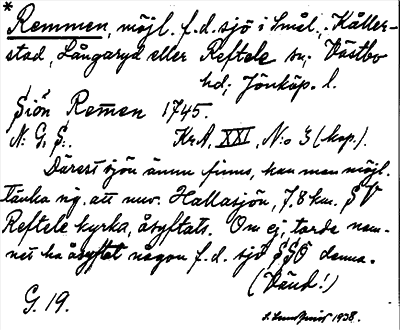 * Remmen, möjl. f.d. sjö i Smål., Kåller-
stad, Långaryd eller Reftele sn; Västbo
hd; Jönköp. l.
Siön Remen 1745.
N: G, S:. KrA, XXI, N:o 3 (kop.).
Därest sjön ännu finns, kan man möjl.
tänka sig, att nuv. Hallasjön, 7,8 km. SV
Reftele kyrka, åsyftats. Om ej, torde nam-
net ha åsyftat någon f.d. sjö SSÖ denna.
(Vänd!)
G. 19.
1938.